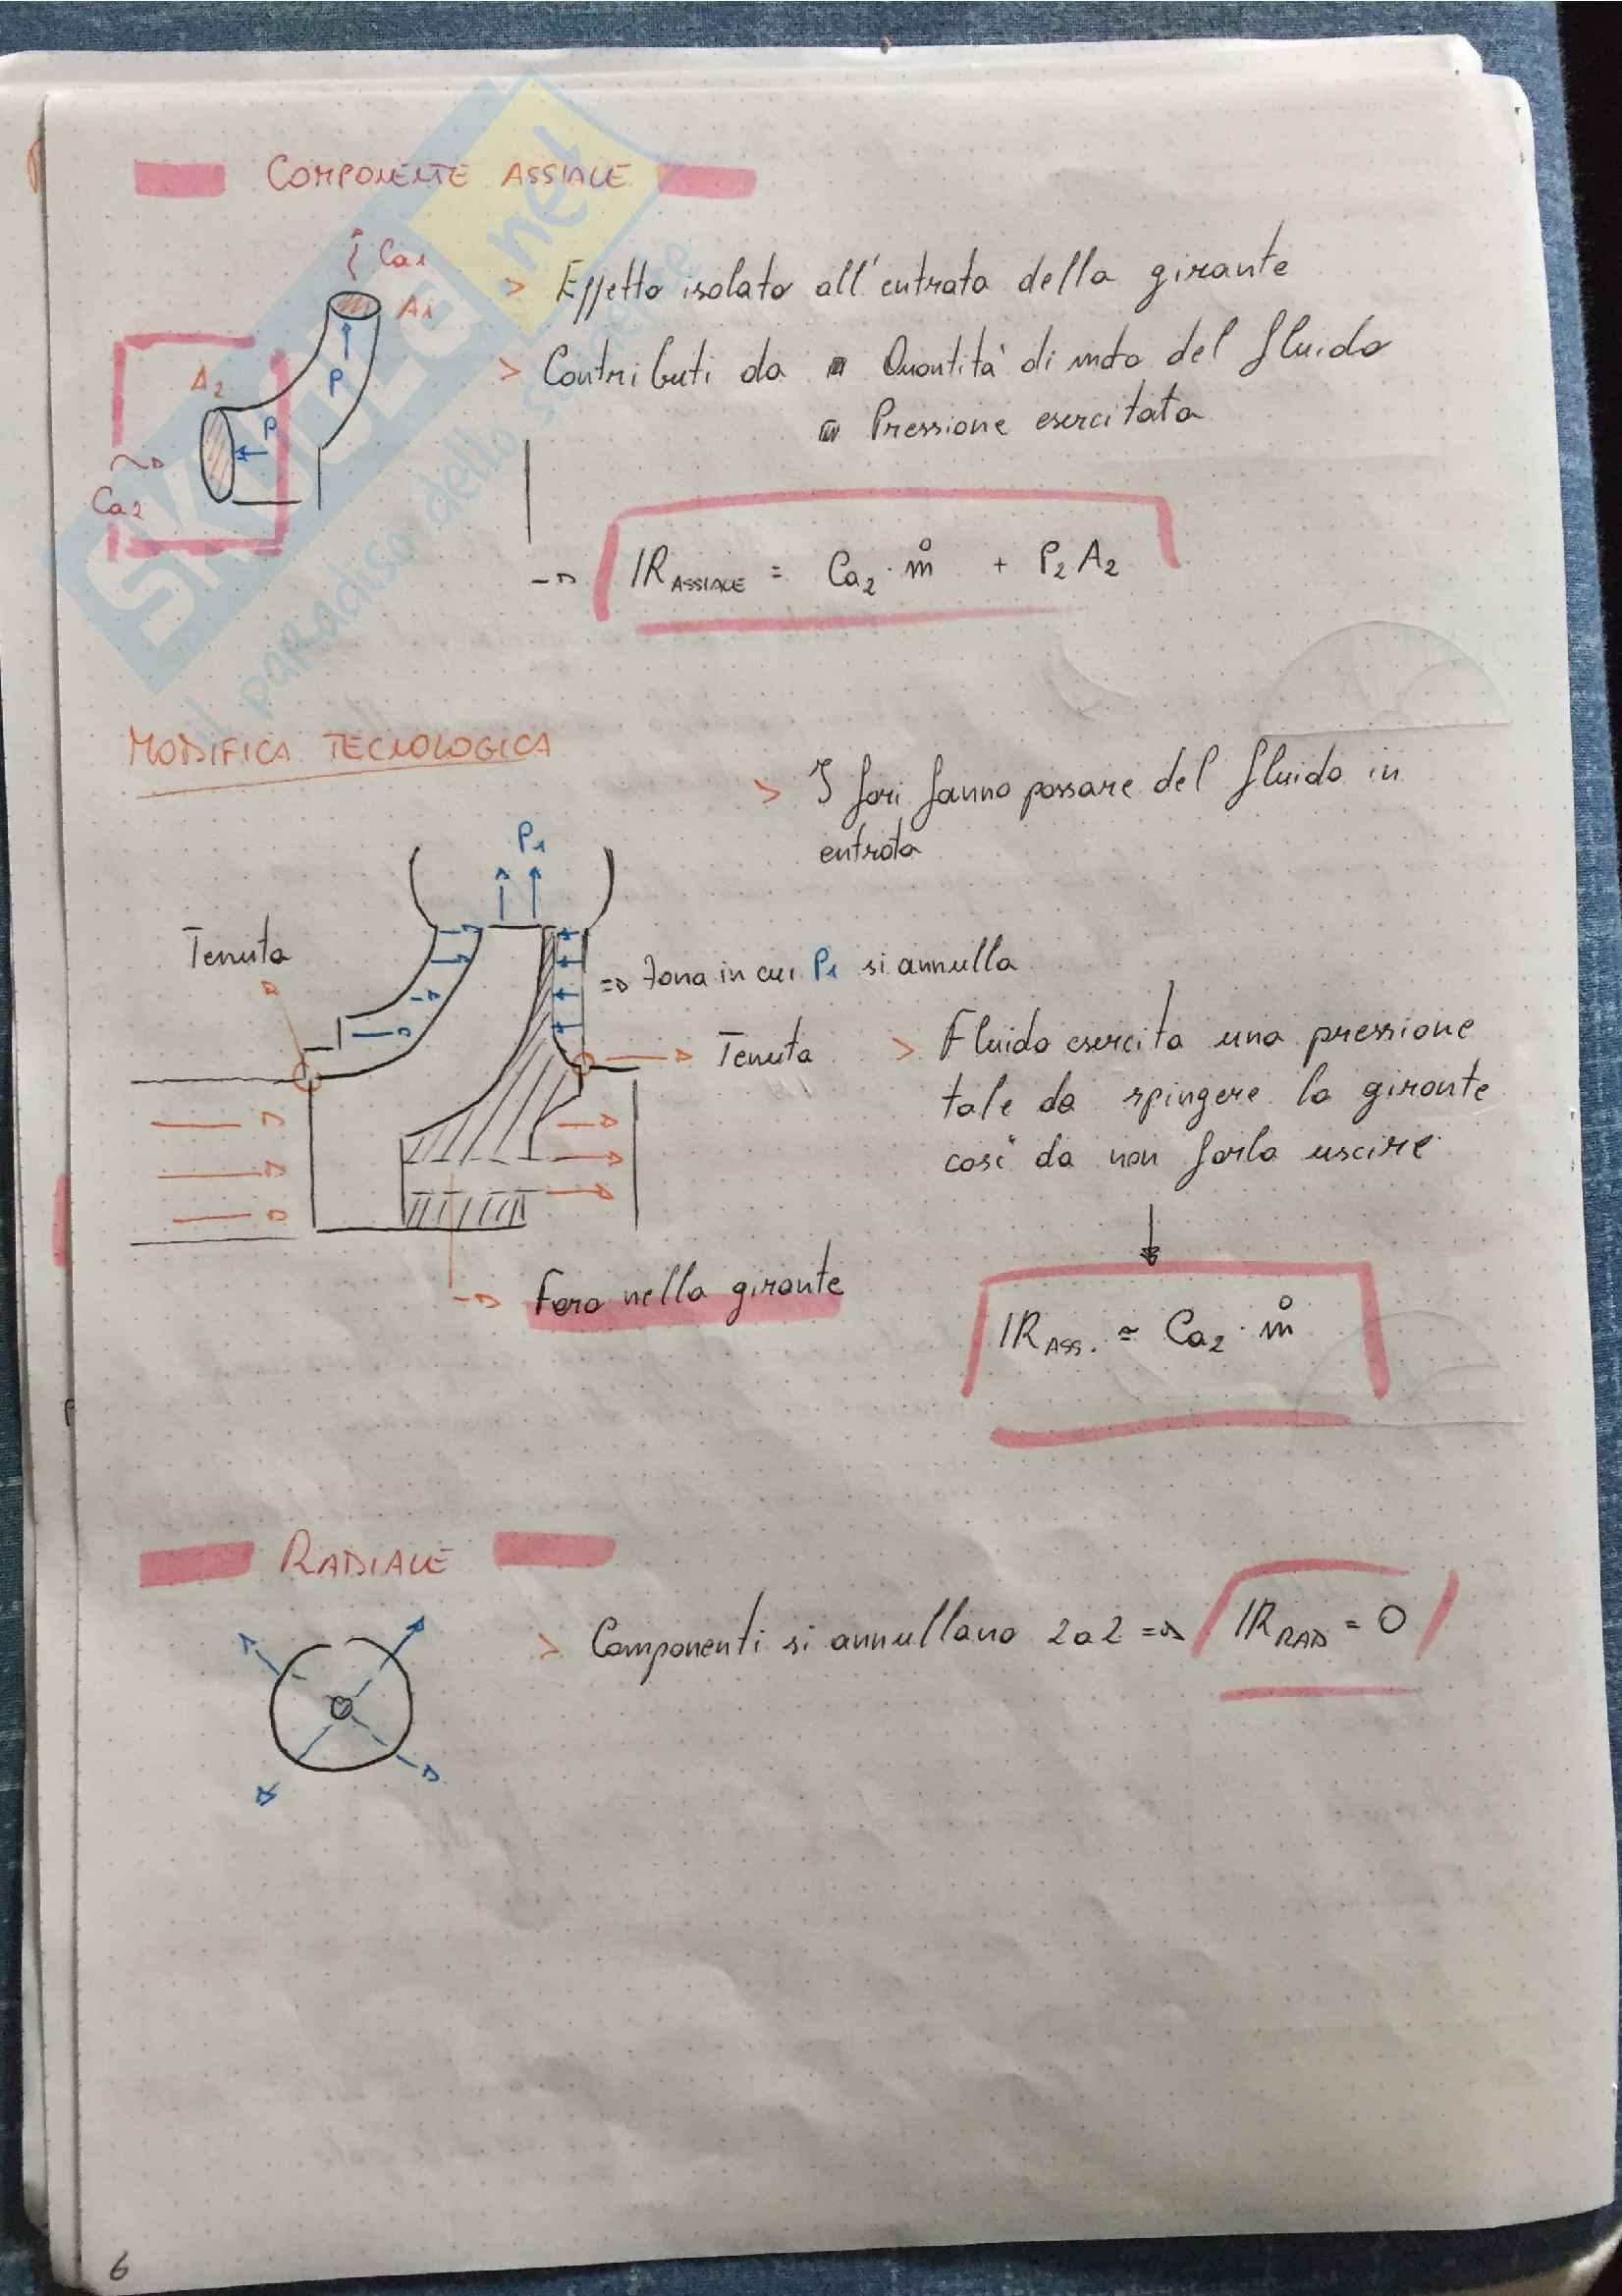 COMPONENTE ASSIALE
Ca1
A1
P
A2
P
Ca2
> Effetto isolato all'entrata della girante
> Contributi da ▪ Quantità di moto del fluido
▪ Pressione esercitata
→ IR ASSIALE = Ca2 · ṁ + P2 A2
SKUOLA.net
il paradiso dello studente
MODIFICA TECNOLOGICA
> I fori fanno passare del fluido in
entrata
P1
Tenuta
⇒ Zona in cui P1 si annulla
→ Tenuta
> Fluido esercita una pressione
tale da spingere la girante
così da non farla uscire
→ Foro nella girante
IR ASS. ≃ Ca2 · ṁ
RADIALE
> Componenti si annullano 2 a 2 ⇒ IR RAD = 0
6